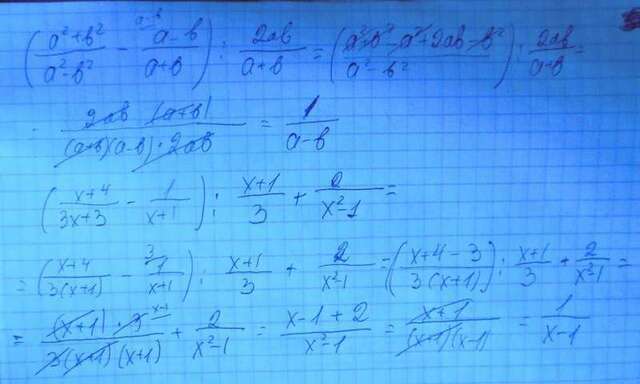 (a²+b²/a²-b² - a-b/a+b) : 2ab/a+b = (a²+b²-a²+2ab-b²/a²-b²) : 2ab/a+b =
2ab (a+b)/(a+b)(a-b) · 2ab = 1/a-b
(x+4/3x+3 - 1/x+1) : x+1/3 + 2/x²-1 =
= (x+4/3(x+1) - 1/x+1) : x+1/3 + 2/x²-1 = (x+4-3/3(x+1)) : x+1/3 + 2/x²-1 =
= (x+1) · 3/3(x+1)(x+1) + 2/x²-1 = x-1+2/x²-1 = x+1/(x+1)(x-1) = 1/x-1